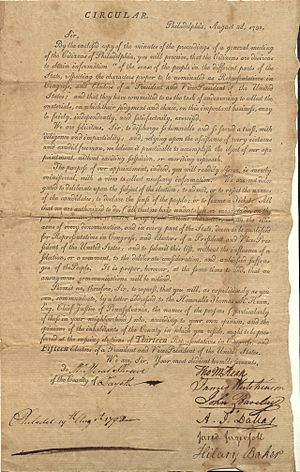 CIRCULAR.
Philadelphia, August 2d, 1792.
Sir,
By the enclosed copy of the minutes of the proceedings of a general meeting
of the Citizens of Philadelphia, you will perceive, that the Citizens are desirous
to obtain information "of the sense of the people in the different parts of the
State, respecting the characters proper to be nominated as Representatives in
Congress, and Electors of a President and Vice-President of the United
States; and that they have committed to us the task of endeavouring to collect the
materials, on which their judgment and choice, on this important business, may
be fairly, independently, and satisfactorily, exercised.
We are solicitous, Sir, to discharge so honorable and so sacred a trust, with
diligence and impartiality; and, relying upon the assistance of every virtuous
and candid freeman, we believe it practicable to accomplish the object of our ap-
pointment, without exciting passion, or meriting reproach.
The purpose of our appointment, indeed, you will readily
with a view to collect We are not
gated to deliberate upon the subject of the election; to admit, or to reject the names
of the candidates; to declare the sense of the people; or to form a Ticket: All
that we are authorised to do,
men of every denomination, and in every part of the State, deem to be qualified
for Representatives in Congress, and Electors of a President and Vice-Presi-
dent of the United States; and to submit this list, without the expression of a
selection, or a comment, to the deliberate consideration, and unbiassed suffra-
ges of the People. It is proper, however, at the same time to add, that no
anonymous communications will be noticed.
Permit us, therefore, Sir, to request, that you will, as expeditiously as
you can, communicate, by a letter addressed to the Honorable Thomas M'Kean,
Esq. Chief Justice of Pennsylvania, the names of the persons (particularly
of those in your neighbourhood) who, according to your own opinion, and the
opinions of the inhabitants of the County in which you reside, ought to be
proposed at the ensuing elections of Thirteen Representatives in Congress, and
Fifteen Electors of a President and Vice-President of the United States.
We are, Sir, Your most obedient humble servants,
To
of the County of Fayette
Thos M:Kean
James Hutchinson
John Barclay
A. J. Dallas
Jared Ingersoll
Hilary Baker
Philadel 19th Augt. 1792